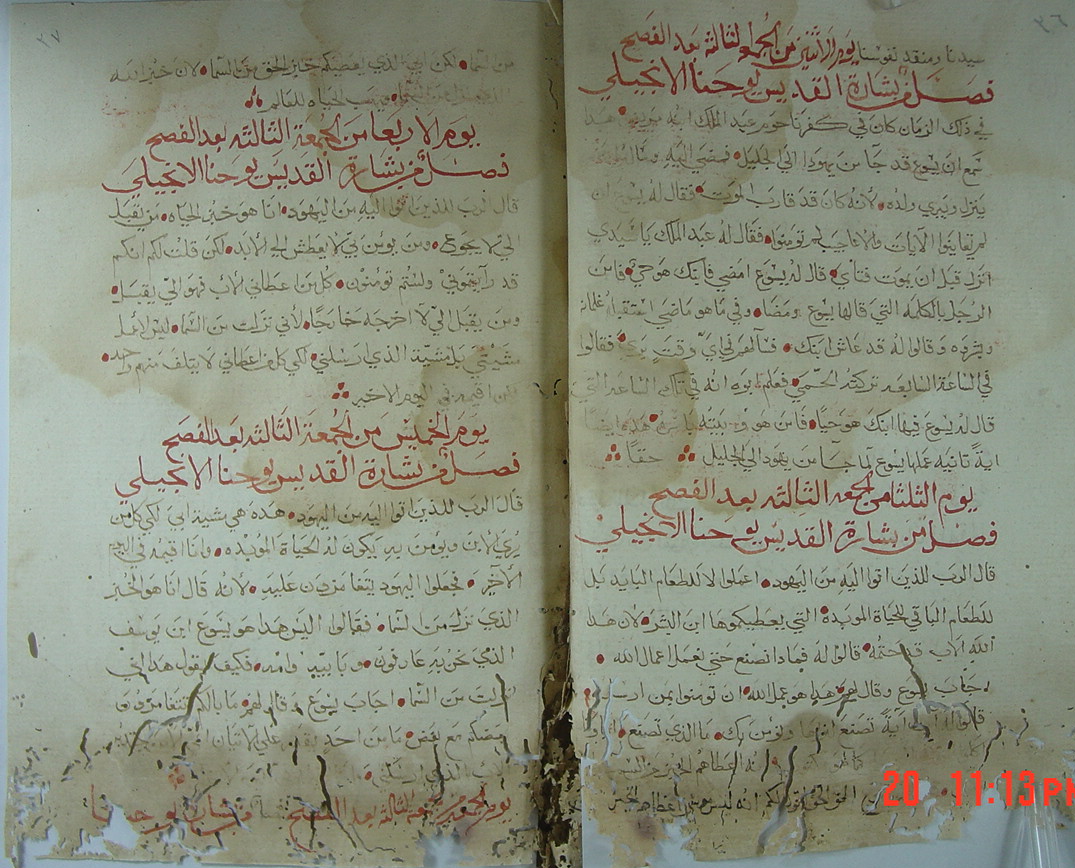 ٣٦
سيدنا ومنقد نفوسنا يوم الاثنين من الجمعة الثالثه بعد الفصح
فصل من بشارة القديس يوحنا الانجيلي
في ذلك الزمان كان في كفرناحوم عبد الملك ابنه مريض هدا
سمع ان يسوع قد جا من يهودا الي الجليل فمضي اليه وساله
ينزل ويبري ولده لانه كان قد قارب الموت فقال له يسوع ان
لم تعاينوا الآيات والاعاجيب لم تومنوا فقال له عبد الملك يا سيدي
انزل قبل ان يموت فتاي قال له يسوع امضي فابنك هو حي فامن
الرجل بالكلمه التي قالها يسوع ومضا وفي ما هو ماضي استقبله غلمانه
وبشروه وقالوا له قد عاش ابنك فسالهم في اي وقت بري فقالوا
في الساعة السابعه تركته الحمي فعلم ابوه انه في تلك الساعه التي
قال له يسوع فيها ابنك هو حيا فامن هو وبيته باسره هده ايضا
اية تانية عملها يسوع لما جا من يهودا الي الجليل حقا
يوم الثلثا من الجمعه الثالثه بعد الفصح
فصل من بشارة القديس يوحنا الانجيلي
قال الرب للذين اتوا اليه من اليهود اعملوا لا للطعام البايد بل
للطعام الباقي لحياة الموبدة التي يعطيكموها ابن البشر لان هدا
الله الاب قد ختمه قالوا له فمادا نصنع حتي نعمل اعمال الله
اجاب يسوع وقال لهم هدا هو عمل الله ان تومنوا بمن ارسله
قالوا له اية تصنع لنراها ونومن بك ما الذي تصنع
اعطاهم
الحق الحق اقول لكم انه ليس موسي اعطاهم الخبز
٣٧
من السما لكن ابي الذي يعطيكم خبز الحق من السما لان خبز الله
الذي نزل من السما ويهب الحياه للعالم
يوم الاربعا من الجمعة الثالثه بعد الفصح
فصل من بشارة القديس يوحنا الانجيلي
قال الرب للذين اتوا اليه من اليهود انا هو خبز الحياه من يقبل
الي لا يجوع ومن يومن بي لا يعطش الي الابد لكن قلت لكم انكم
قد رايتموني ولستم تومنون كل من اعطاني الاب فهو الي يقبل
ومن يقبل الي لا اخرجه خارجا لأني نزلت من السما ليس لاعمل
مشيتي بل مشية الذي ارسلني لكي كل من اعطاني لا يتلف منهم واحد
لكن اقيمه في اليوم الاخير
يوم الخميس من الجمعة الثالثه بعد الفصح
فصل من بشارة القديس يوحنا الانجيلي
قال الرب للذين اتوا اليه من اليهود هده هي مشية ابي لكي كل من
يري الابن ويومن به يكون له الحياة الموبده وانا اقيمه في اليوم
الاخير فجعلوا اليهود يتقامزون عليه لانه قال انا هو الخبز
الذي نزل من السما فقالوا اليس هدا هو يسوع ابن يوسف
الذي نحن به عارفون وبابيه وامه فكيف يقول هدا اني
نزلت من السما اجاب يسوع وقال لهم ما بالكم تتقامزون
بعضكم مع بعض ما من احد يقدر علي الاتيان
الاب الذي ارسلني
يوم الجمعة من الجمعه الثالثه بعد الفصح من بشارة يوحنا
20 11:13 PM